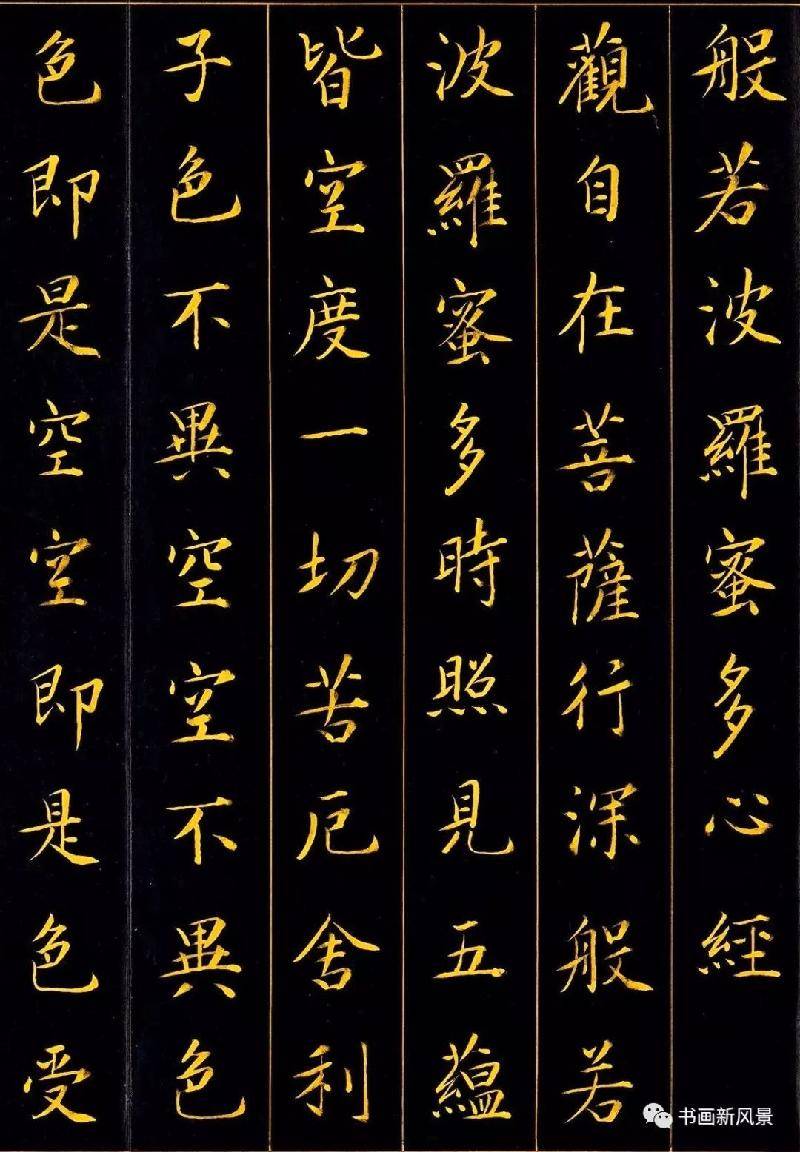 般若波羅蜜多心經
觀自在菩薩行深般若
波羅蜜多時照見五蘊
皆空度一切苦厄舍利
子色不異空空不異色
色即是空空即是色受
书画新风景